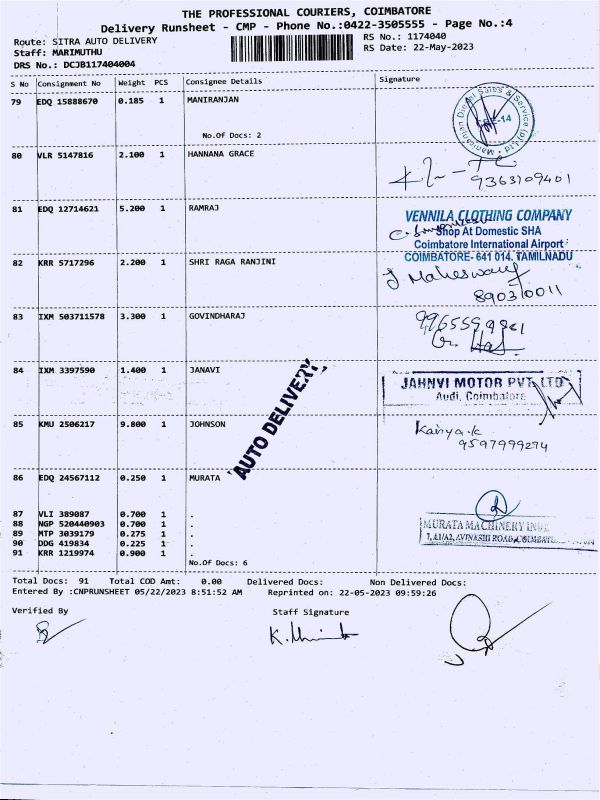 THE PROFESSIONAL COURIERS, COIMBATORE
Delivery Runsheet - CMP - Phone No.:0422-3505555 - Page No.:4
Route: SITRA AUTO DELIVERY
Staff: MARIMUTHU
DRS No.: DCJB117404004
RS No.: 1174040
RS Date: 22-May-2023
S No Consignment No Weight PCS Consignee Details Signature
79 EDQ 15888670 0.185 1 MANIRANJAN
No.Of Docs: 2
Maniranjan Diesel Sales & Service (p) Ltd.
80 VLR 5147816 2.100 1 HANNANA GRACE
9363109401
81 EDQ 12714621 5.200 1 RAMRAJ
VENNILA CLOTHING COMPANY
Shop At Domestic SHA
Coimbatore International Airport
COIMBATORE- 641 014. TAMILNADU
82 KRR 5717296 2.200 1 SHRI RAGA RANJINI
J Maheswary
890310011
83 IXM 503711578 3.300 1 GOVINDHARAJ
84 IXM 3397590 1.400 1 JANAVI
JAHNVI MOTOR PVT. LTD
Audi, Coimbatore
AUTO DELIVERY
85 KMU 2506217 9.800 1 JOHNSON
Kanya.k
9597999294
86 EDQ 24567112 0.250 1 MURATA
87 VLI 389087 0.700 1 .
88 NGP 520440903 0.700 1 .
89 MTP 3039179 0.275 1 .
90 DDG 419834 0.225 1 .
91 KRR 1219974 0.900 1 .
No.Of Docs: 6
MURATA MACHINERY
AVINASHI ROAD,
Total Docs: 91 Total COD Amt: 0.00 Delivered Docs: Non Delivered Docs:
Entered By :CNPRUNSHEET 05/22/2023 8:51:52 AM Reprinted on: 22-05-2023 09:59:26
Verified By Staff Signature